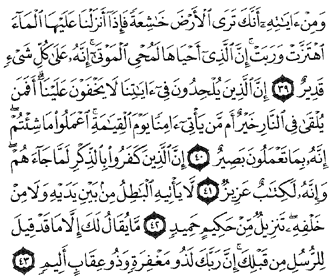 وَمِنْ ءَايَٰتِهِۦٓ أَنَّكَ تَرَى ٱلْأَرْضَ خَٰشِعَةً فَإِذَآ أَنزَلْنَا عَلَيْهَا ٱلْمَآءَ
ٱهْتَزَّتْ وَرَبَتْ ۚ إِنَّ ٱلَّذِىٓ أَحْيَاهَا لَمُحْىِ ٱلْمَوْتَىٰٓ ۚ إِنَّهُۥ عَلَىٰ كُلِّ شَىْءٍ
قَدِيرٌ ٣٩ إِنَّ ٱلَّذِينَ يُلْحِدُونَ فِىٓ ءَايَٰتِنَا لَا يَخْفَوْنَ عَلَيْنَآ ۗ أَفَمَن
يُلْقَىٰ فِى ٱلنَّارِ خَيْرٌ أَم مَّن يَأْتِىٓ ءَامِنًا يَوْمَ ٱلْقِيَٰمَةِ ۚ ٱعْمَلُوا۟ مَا شِئْتُمْ ۖ
إِنَّهُۥ بِمَا تَعْمَلُونَ بَصِيرٌ ٤٠ إِنَّ ٱلَّذِينَ كَفَرُوا۟ بِٱلذِّكْرِ لَمَّا جَآءَهُمْ ۖ
وَإِنَّهُۥ لَكِتَٰبٌ عَزِيزٌ ٤١ لَّا يَأْتِيهِ ٱلْبَٰطِلُ مِنۢ بَيْنِ يَدَيْهِ وَلَا مِنْ
خَلْفِهِۦ ۖ تَنزِيلٌ مِّنْ حَكِيمٍ حَمِيدٍ ٤٢ مَّا يُقَالُ لَكَ إِلَّا مَا قَدْ قِيلَ
لِلرُّسُلِ مِن قَبْلِكَ ۚ إِنَّ رَبَّكَ لَذُو مَغْفِرَةٍ وَذُو عِقَابٍ أَلِيمٍ ٤٣